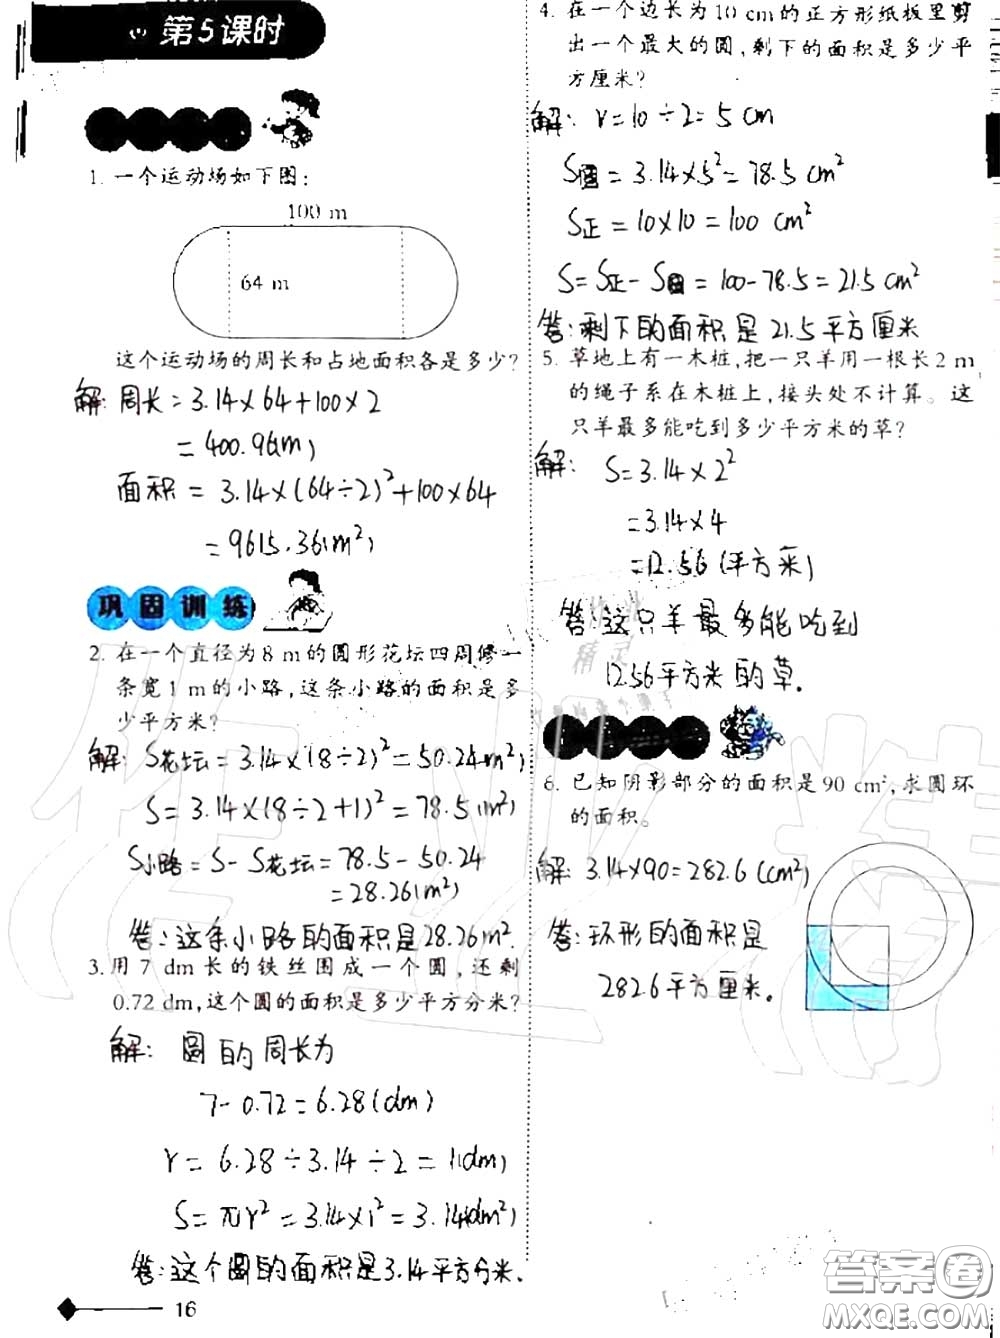 第5课时
1. 一个运动场如下图：
100 m
64 m
这个运动场的周长和占地面积各是多少？
解：周长=3.14×64+100×2
=400.96(m)
面积=3.14×(64÷2)²+100×64
=9615.36(m²)
巩固训练
2. 在一个直径为8 m的圆形花坛四周修一
条宽1 m的小路，这条小路的面积是多
少平方米？
解：S花坛=3.14×(8÷2)²=50.24(m²)
S=3.14×(8÷2+1)²=78.5(m²)
S小路=S-S花坛=78.5-50.24
=28.26(m²)
答：这条小路的面积是28.26m².
3. 用7 dm长的铁丝围成一个圆，还剩
0.72 dm，这个圆的面积是多少平方分米？
解：圆的周长为
7-0.72=6.28(dm)
r=6.28÷3.14÷2=1(dm)
S=πr²=3.14×1²=3.14(dm²)
答：这个圆的面积是3.14平方分米.
16
4. 在一个边长为10 cm的正方形纸板里剪
出一个最大的圆，剩下的面积是多少平
方厘米？
解：r=10÷2=5cm
S圆=3.14×5²=78.5cm²
S正=10×10=100cm²
S=S正-S圆=100-78.5=21.5cm²
答：剩下的面积是21.5平方厘米
5. 草地上有一木桩，把一只羊用一根长2 m
的绳子系在木桩上，接头处不计算。这
只羊最多能吃到多少平方米的草？
解：S=3.14×2²
=3.14×4
=12.56(平方米)
答：这只羊最多能吃到
12.56平方米的草.
6. 已知阴影部分的面积是90 cm²，求圆环
的面积。
解：3.14×90=282.6(cm²)
答：环形的面积是
282.6平方厘米.
答案圈
MXQE.COM